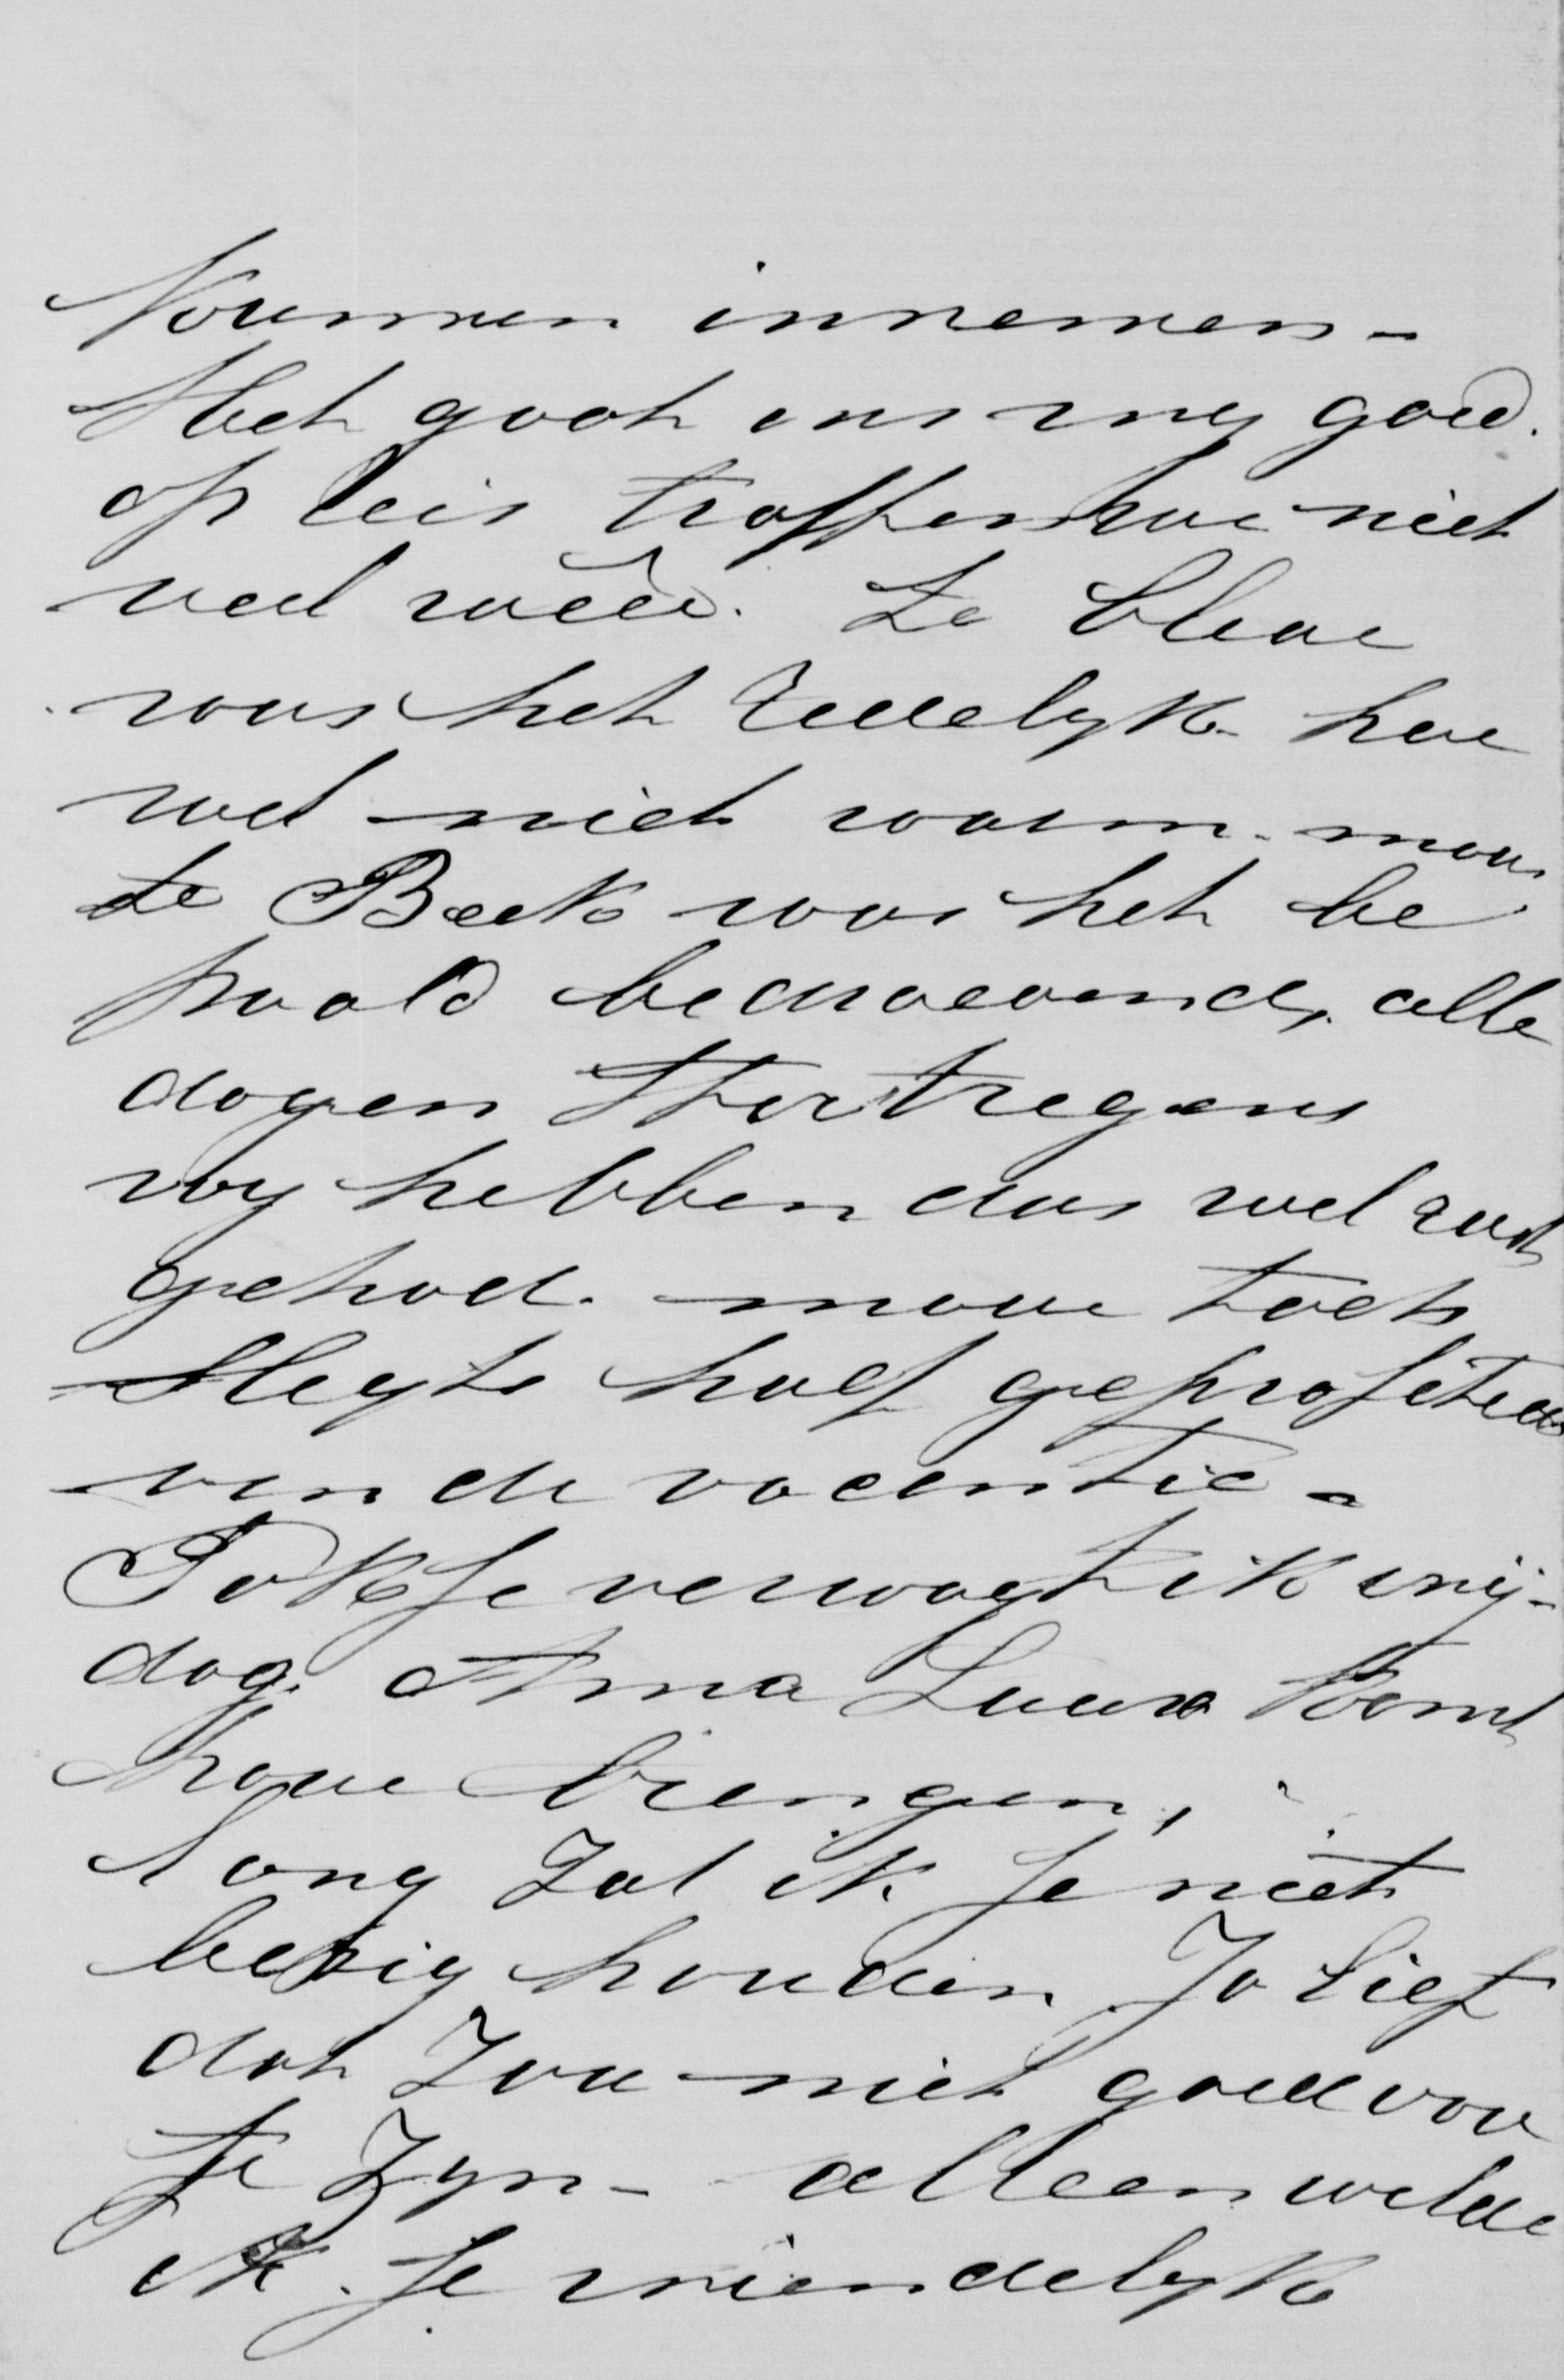 Kunnen innemen -
Het gaat ons nog goed.
op reis troffen we niet
veel weêr. Te Cleve
was het redelyk hoe
wel niet warm. maar
te Beek was het be
paald bedroevend, alle
dagen Stortregens
wy hebben dus wel rust
gehad. maar toch
Slegts half geprofiteerd
van de vacantie -
Pokje verwagt ik vrij-
dag. Anna Luuxe komt
haar brengen,
Lang Zal ik Je niet
bezig houden Jo lief
dat Zou niet goed voor
Je Zyn - alleen wilde
ik Je vriendelyk